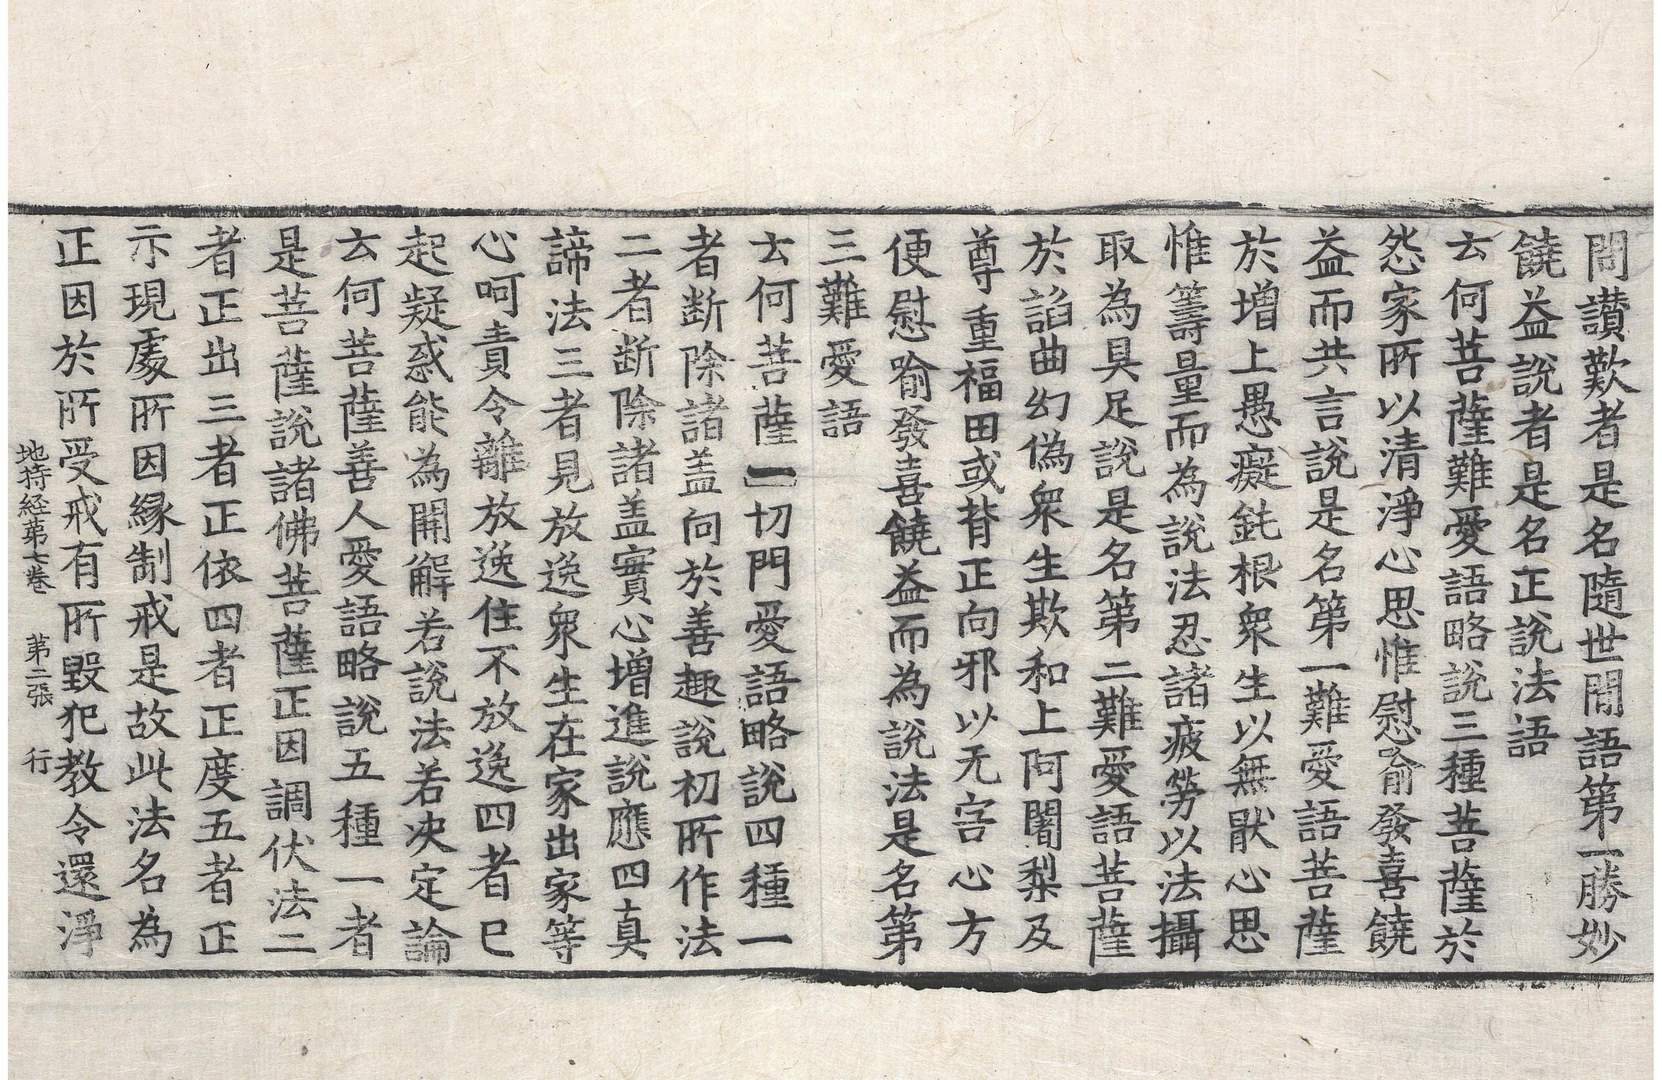 問讃歎者是名隨世間語第一勝妙
饒益說者是名正說法語
云何菩薩難愛語略說三種菩薩於
怨家所以清淨心思惟慰喻發喜饒
益而共言說是名第一難愛語菩薩
於增上愚癡鈍根衆生以無猒心思
惟籌量而為說法忍諸疲勞以法攝
取為具足說是名第二難愛語菩薩
於諂曲幻偽衆生欺和上阿闍梨及
尊重福田或背正向邪以无害心方
便慰喻發喜饒益而為說法是名第
三難愛語
云何菩薩一切門愛語略說四種一
者断除諸盖向於善趣說初所作法
二者断除諸盖實心增進說應四真
諦法三者見放逸衆生在家出家等
心呵責令離放逸住不放逸四者已
起疑惑能為開解若說法若决定論
云何菩薩善人愛語略說五種一者
是菩薩說諸佛菩薩正因調伏法二
者正出三者正依四者正度五者正
示現處所因緣制戒是故此法名為
正因於所受戒有所毀犯教令還淨
地持経苐七卷　第二張　行